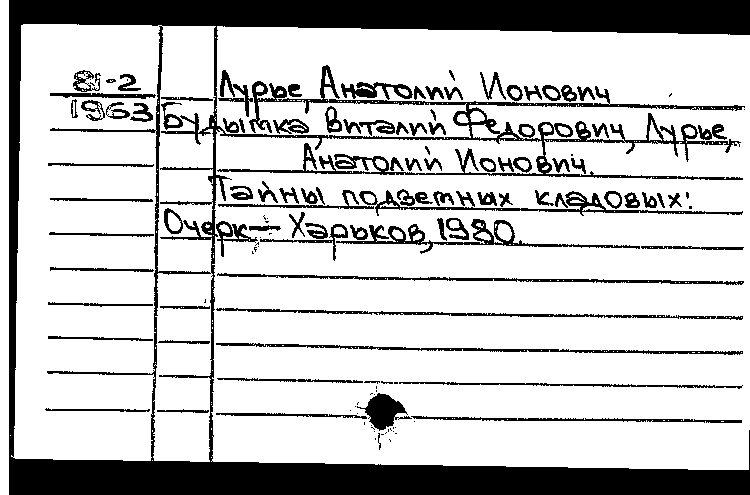 81-2
1963
Лурье, Анатолий Ионович
Будымка, Виталий Федорович, Лурье,
Анатолий Ионович.
Тайны подземных кладовых:
Очерк — Харьков, 1980.